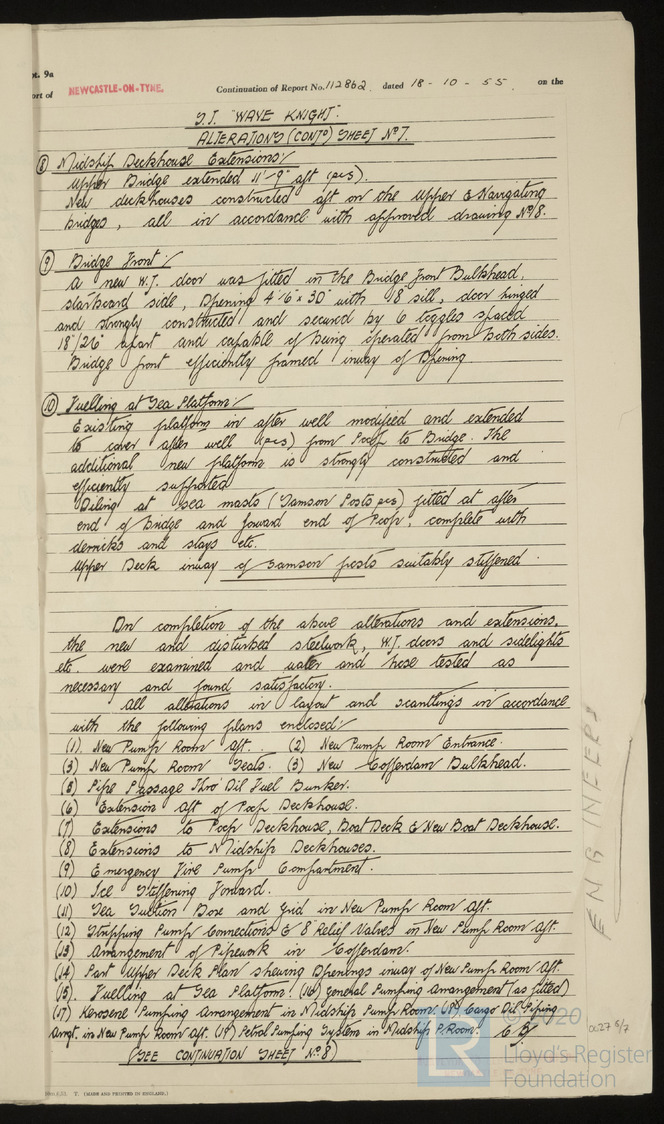 pt. 9a
ort of NEWCASTLE-ON-TYNE. Continuation of Report No. 112862 dated 18-10-55 on the
S.T. "WAVE KNIGHT".
ALTERATIONS (CONTD) SHEET No 7.
(8) Midship Deckhouse Extensions:-
Upper Bridge extended 11'-9" aft (p&s).
New deckhouses constructed aft on the Upper & Navigating
bridges, all in accordance with approved drawing No 18.
(9) Bridge Front:-
A new W.T. door was fitted in the Bridge Front Bulkhead,
starboard side, Opening 4'6" x 30" with 18" sill, door hinged
and strongly constructed and secured by 6 toggles spaced
18"/26" apart and capable of being operated from both sides.
Bridge front efficiently framed inway of Opening
(10) Fuelling at Sea Platform:-
Existing platform in after well modified and extended
to cover after well (p&s) from Poop to Bridge. The
additional new platform is strongly constructed and
efficiently supported
Oiling at sea masts (Samson Posts p&s) fitted at after
end of bridge and forward end of Poop, complete with
derricks and stays etc.
Upper Deck inway of Samson posts suitably stiffened.
On completion of the above alterations and extensions,
the new and disturbed steelwork, W.T. doors and sidelights
etc. were examined and water and hose tested as
necessary and found satisfactory.
All alterations in layout and scantlings in accordance
with the following plans enclosed:-
(1). New Pump Room Aft. (2) New Pump Room Entrance.
(3) New Pump Room Seats. (3) New Cofferdam Bulkhead.
(5) Pipe Passage Thro' Oil Fuel Bunker.
(6) Extension Aft of Poop Deckhouse.
(7) Extensions to Poop Deckhouse, Boat Deck & New Boat Deckhouse.
(8) Extensions to Midship Deckhouses.
(9) Emergency Fire Pump Compartment.
(10) Ice Stiffening Forward.
(11) Sea Suction Box and Grid in New Pump Room Aft.
(12) Stripping Pump Connections & 8" Relief Valves in New Pump Room Aft.
(13) Arrangement of Pipework in Cofferdam.
(14) Part Upper Deck Plan shewing Openings inway of New Pump Room Aft.
(15). Fuelling at Sea Platform. (16) General Pumping Arrangement (as fitted)
(17) Kerosene Pumping Arrangement in Midship Pump Room. (18) Cargo Oil Piping
Arrgt. in New Pump Room Aft. (19) Petrol Pumping System in Midship P. Room.
(SEE CONTINUATION SHEET No 8)
ENGINEERS
0027 6/7
©2020
LR
Lloyd's Register
Foundation
T. (MADE AND PRINTED IN ENGLAND.)